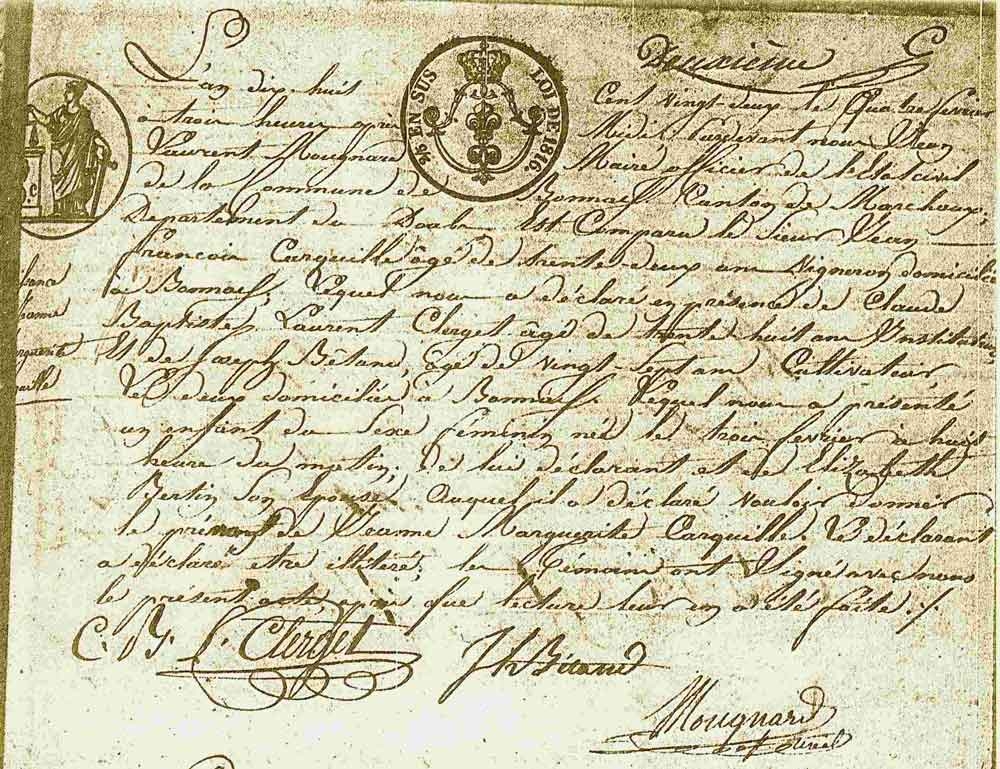 Deuxième
L'an dix huit Cent vingt-deux le quatre fevrier
a trois heures après Midi, pardevant nous Jean
Laurent Mougnard Maire officier de l'Etat civil
de la Commune de Bonnay Canton de Marchaux,
Departement du Doubs Est Comparu le Sieur Jean
francois Carquille âgé de trente deux ans Vigneron domicilié
à Bonnay, Lequel nous a déclaré en présence de Claude
Baptiste Laurent Clerget âgé de trente huit ans Instituteur
Et de Joseph Bétand, âgé de vingt-Sept ans Cultivateur
deux domiciliés à Bonnay. Lequel nous a présenté
un enfant du Sexe féminin née le trois fevrier à huit
heures du matin, de lui déclarant et de Elizabeth
Bertin Son Epouse, Auquel il a déclaré vouloir donner
le prénom de Jeanne Marguerite Carquille. Le déclarant
a déclaré etre illitéré, les témoins ont Signé avec nous
le présent acte après que lecture leur en a été faite ./.
C. B. L. Clerget
Jh Bétand
Mougnard
EN SUS
LOI DE 1816.